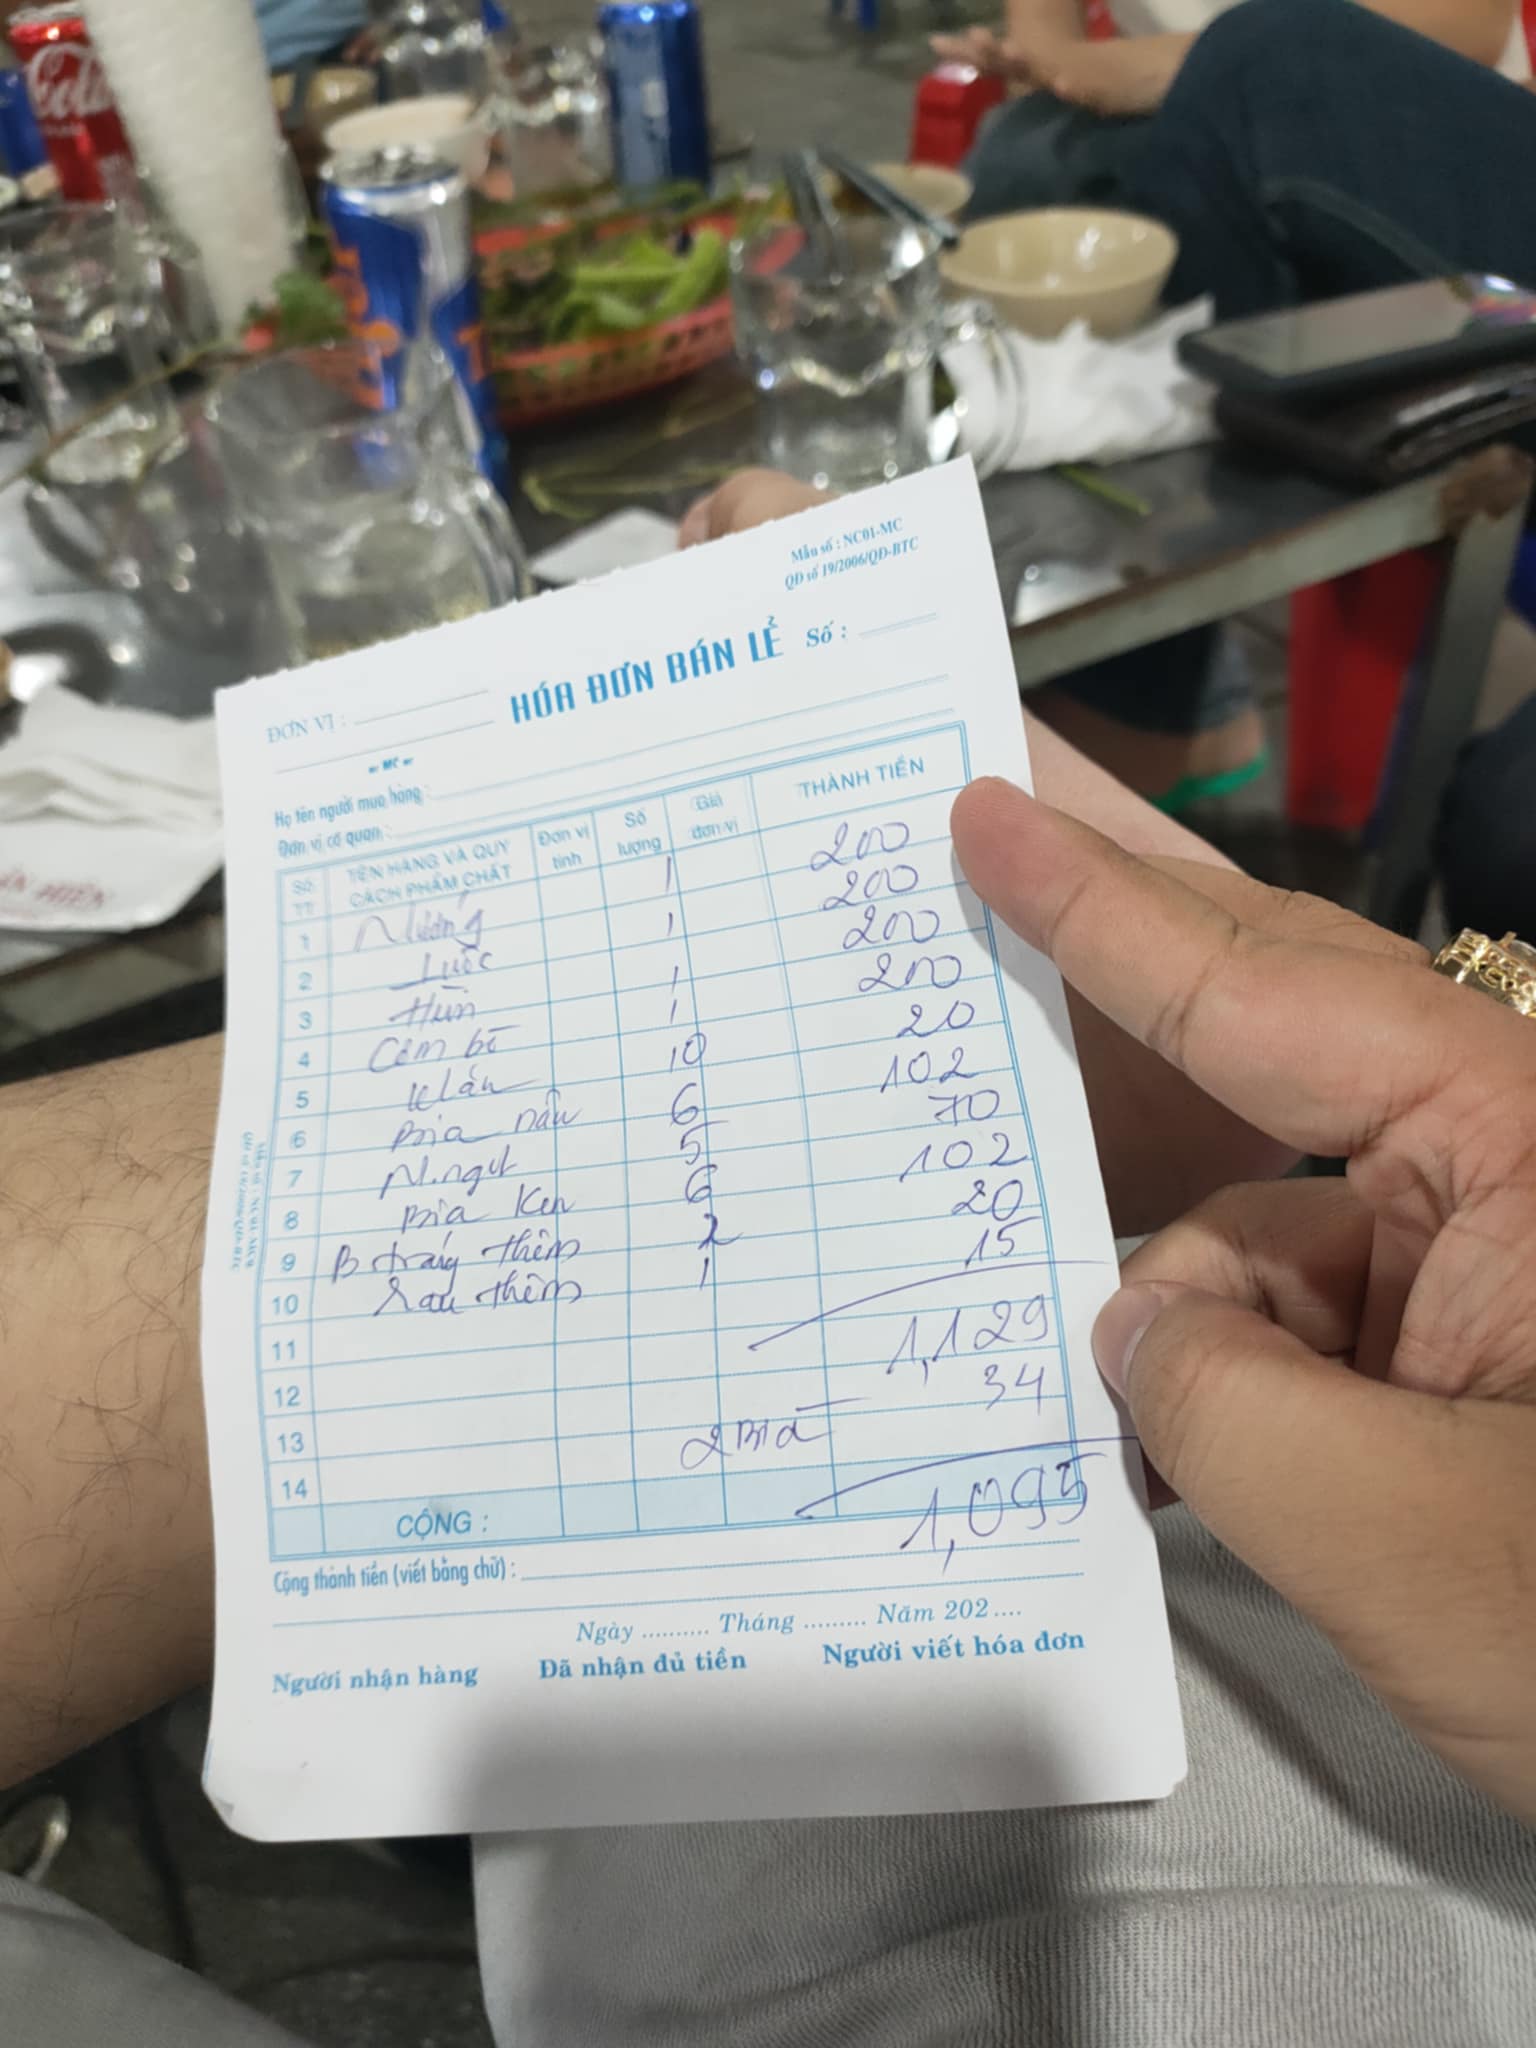 Coca-Cola
Mẫu số : NC01-MC
QĐ số 19/2006/QĐ-BTC
HÓA ĐƠN BÁN LẺ Số :
ĐƠN VỊ :
MC
Họ tên người mua hàng :
Đơn vị cơ quan :
Số TT TÊN HÀNG VÀ QUY CÁCH PHẨM CHẤT Đơn vị tính Số lượng Giá đơn vị THÀNH TIỀN
1 Nướng 1 200
2 Luộc 1 200
3 1 200
4 1 200
5 Khăn 10 20
6 Bia nâu 6 102
7 N.ngọt 5 70
8 Bia Ken 6 102
9 B tráng thêm 2 20
10 Rau thêm 1 15
11
12 1,129
13 2 Bia 34
14
CỘNG : 1,095
Cộng thành tiền (viết bằng chữ) :
Ngày .......... Tháng ......... Năm 202 ....
Người nhận hàng Đã nhận đủ tiền Người viết hóa đơn